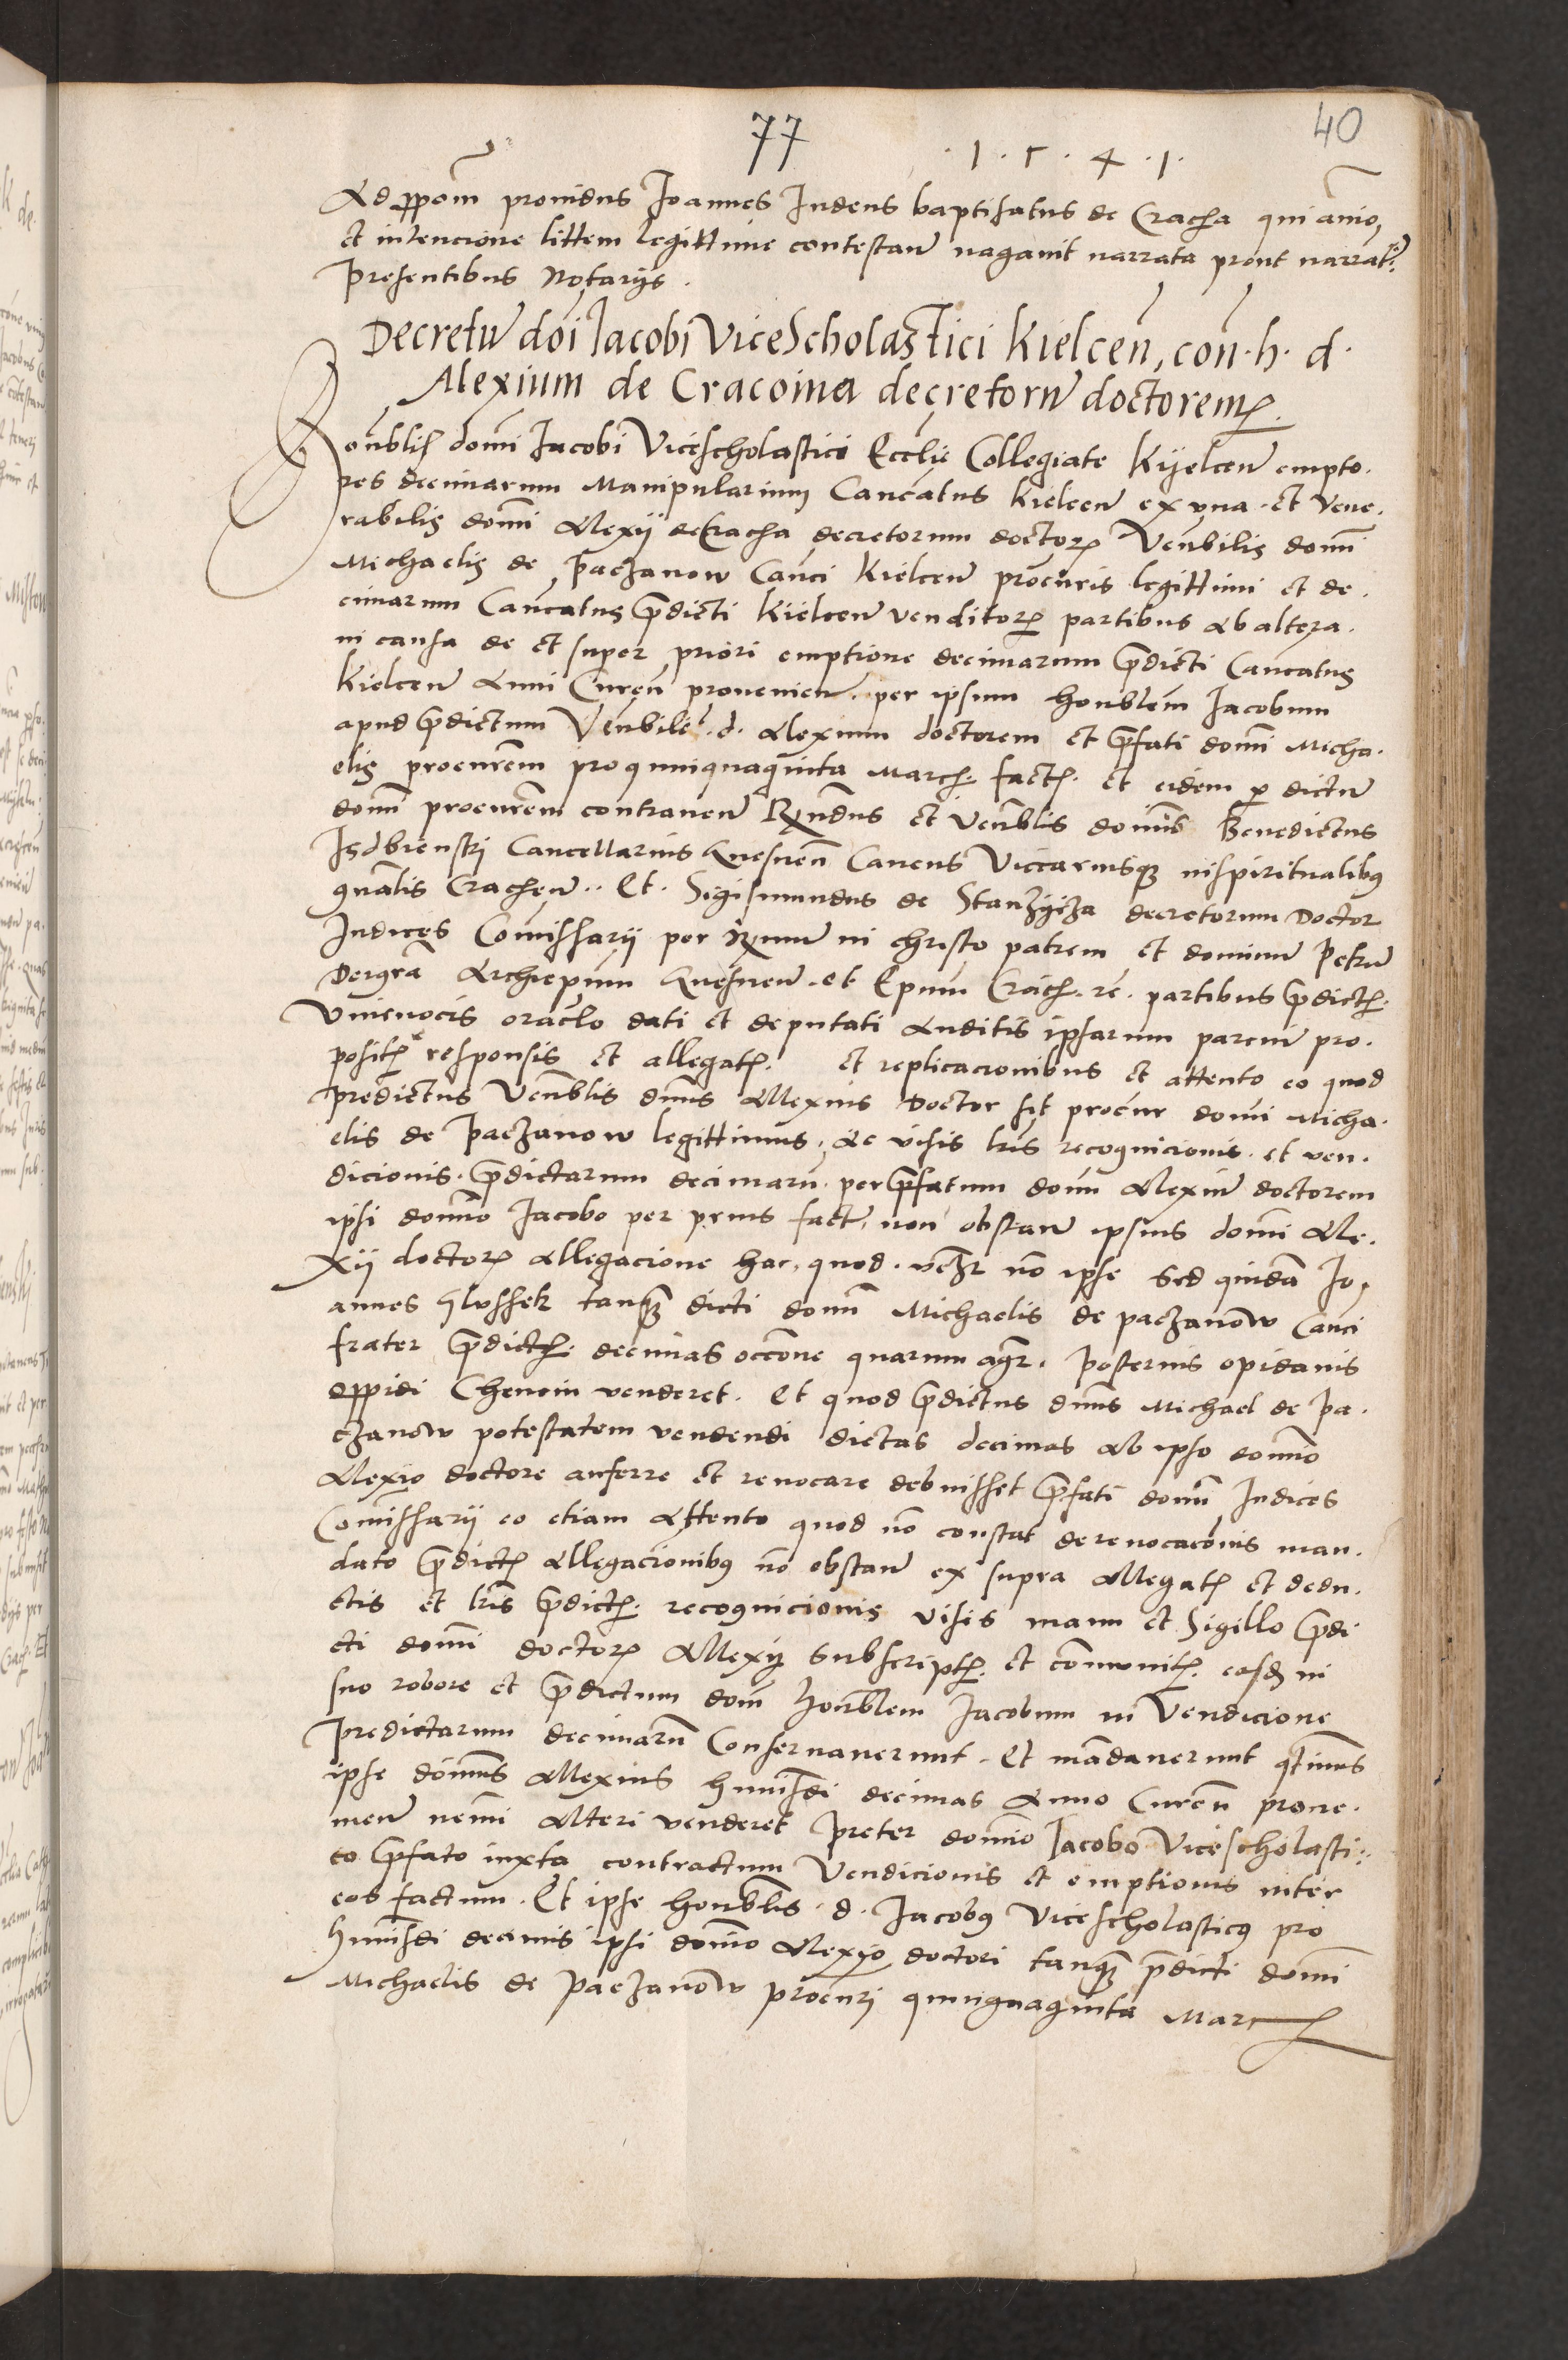 77
40
· 1 · 5 · 4 · 1 ·
Ad ppom̄ providus Joannes Judeus baptisatus de Cracħa qui aīo,
et intencione littem legittime contestan̄ nagavit narrata prout narrat̄r
presentibus Notarijs .
Decretū dōi Jacobi ViceScholastici Kielcen̄, con · h · d ·
Alexium de Cracovia decretorū doctorem
Honblis domī Jacobi Vicescholastici Eccl̄ie Collegiate Kyelcen̄ empto ·
res decimarum Manipularium Cancatus Kielcen̄ ex vna · et Vene ·
rabilis domī Alexij de Cracħa decretorum doctoris Venbilis domī
Michaelis de Paczanow Canci Kielcen̄ procuris legittimi et de ·
cimarum Cancatus p̄dicti Kielcen̄ venditoris partibus ab altera ·
in causa de et super priori emptione decimarum p̄dicti Cancatus
Kielcen̄ Anni Curen̄ provenien̄ · per ipsum honblem Jacobum
apud p̄dictum Venbile · d · Alexium doctorem et p̄fati domī Micha ·
elis procurem pro quinquaginta March · fact · et eidem p dictū
domī procurem contraven̄ Rndus et Venblis domīs Benedictus
Isdbienski Cancellarius Gnesnen̄ Canens Viccariusq̄ in spiritualibus
gn̄alis Crachen̄ · · Et · Sigismundus de Stanzycza decretorum Doctor
Judices Comissarij per Rmū in christo patrem et dominū Petrū
Dei gr̄a Archiepum Gnesnen̄ · et Epum Crach · re · partibus p̄dict ·
Vive vocis oraclo dati et deputati Auditis ipsarum parciū pro ·
posit responsis et allegat · et replicacionibus et attento eo quod
predictus Venblis dnus Allexius Doctor sit procur domī Micha ·
elis de Paczanow legittimus , Ac visis lris recognicionis · et ven ·
dicionis · p̄dictarum decimarū · per p̄fatum dom̄ Alexiū doctorem
ipsi domīo Jacobo per prius fact , non obstan̄ ipsius domī Ale ·
xij doctoris allegacione hac , quod · non ipse sed quidā Jo ,
annes Glussek tanq̄ dicti domī Michaelis de paczanow Canci
frater p̄dict · decimas occōne quarum agr̄ · posterius opidanis
oppidi Chencin venderet · Et quod p̄dictus dnus Michael de Pa ·
czanow potestatem vendendi dictas decimas ab ipso domīo
Alexio doctore auferre et revocare debuisset p̄fati domī Judices
Comissarij eo etiam Attento quod nō constat de revocacōnis man ·
dato p̄dict allegacionibus nō obstan̄ ex supra allegat et dedu ·
ctis et lris p̄dict · recognicionis visis manu et Sigillo p̄di
cti domī doctoris Allexij subscript · et cōmunit · easd in
suo robore et p̄dictum dom̄ honblem Jacobum in Vendicione
predictarum decimarū Conservaverunt · Et mādaverunt qtinus
ipse domīus Allexius huiusdi decimas Anno Curen̄ prove ·
nien̄ nemī Alteri venderet preter domīo Jacobo Vicescholasti :
co p̄fato iuxta contractum Vendicionis et emptionis inter
eos factum · Et ipse honblis · d · Jacobus Vicescholasticus pro
huiusdi decimis ipsi domīo Alexio doctori tanq̄ p̄dicti domī
Michaelis de Paczanow procuri quinquaginta Marc